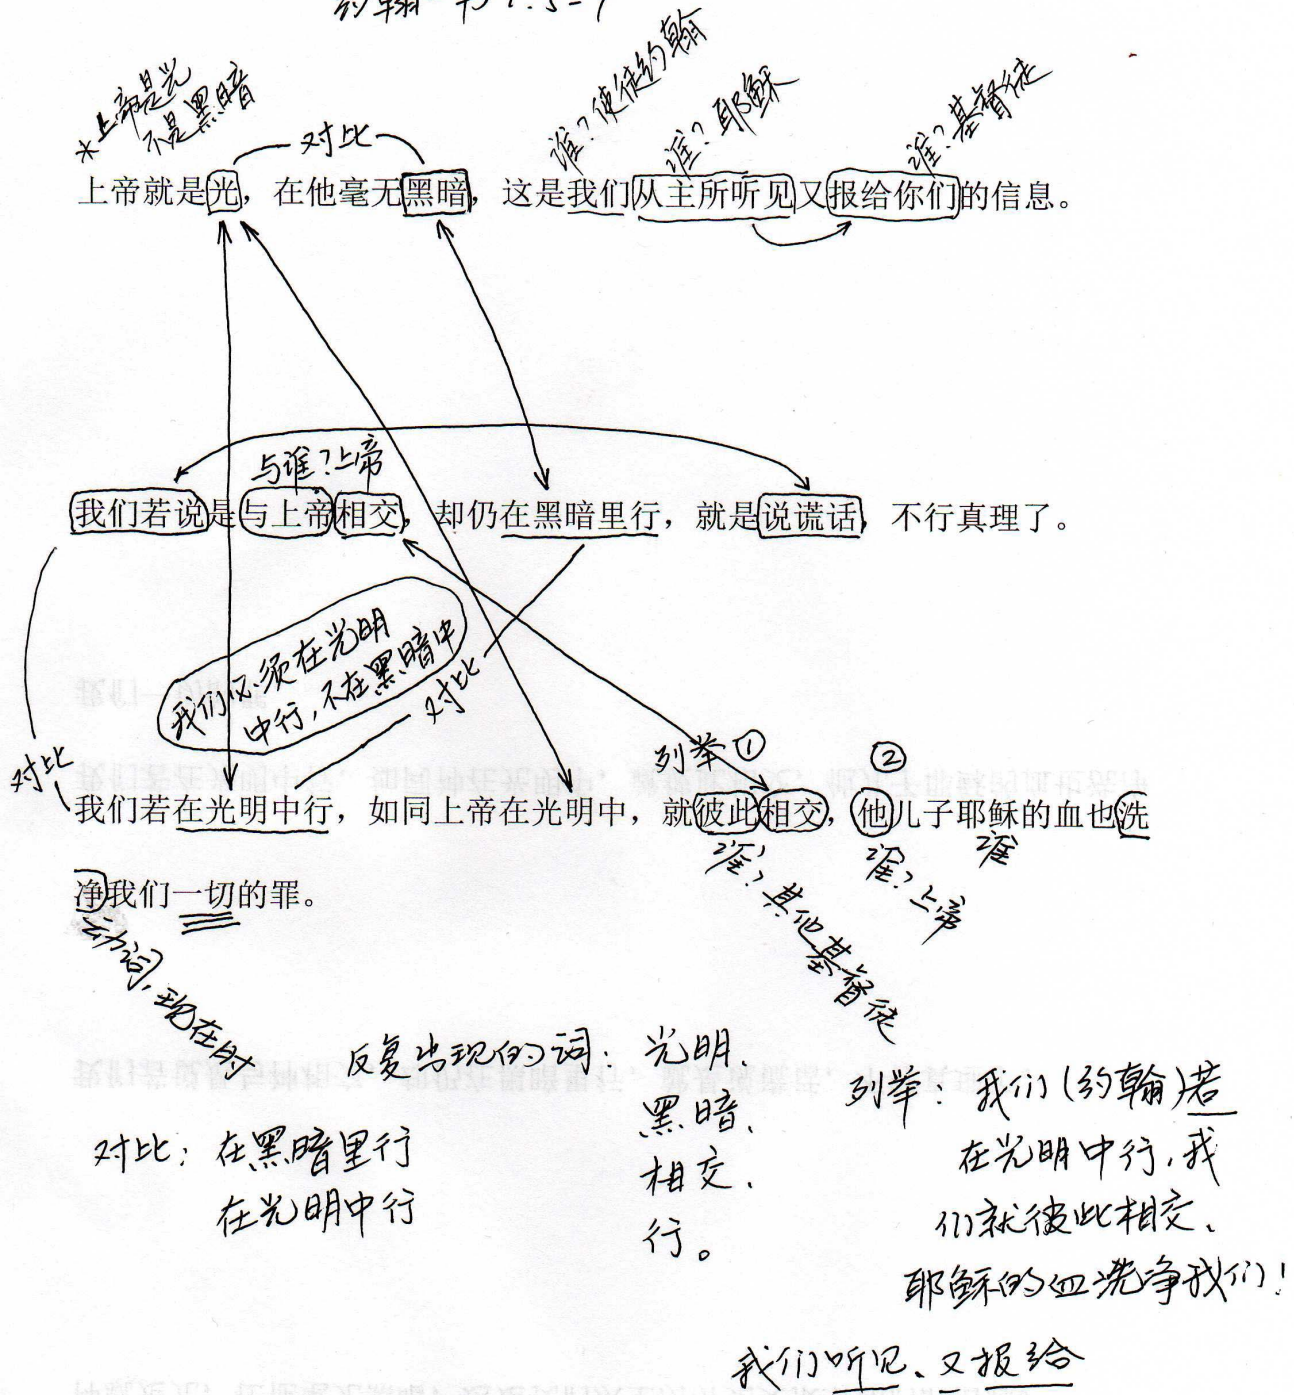 约翰一书1:5-7
*上帝是光
不是黑暗
对比
谁?使徒约翰
谁?耶稣
谁?基督徒
上帝就是光，在他毫无黑暗，这是我们从主所听见又报给你们的信息。
与谁?上帝
我们若说是与上帝相交，却仍在黑暗里行，就是说谎话，不行真理了。
我们必须在光明
中行,不在黑暗中
对比
对比
列举①
②
我们若在光明中行，如同上帝在光明中，就彼此相交，他儿子耶稣的血也洗
净我们一切的罪。
谁?其他基督徒
谁?上帝
谁
动词,现在时
反复出现的词: 光明、
黑暗、
相交、
行。
对比: 在黑暗里行
在光明中行
列举: 我们(约翰)若
在光明中行,我
们就彼此相交、
耶稣的血洗净我们!
我们听见、又报给